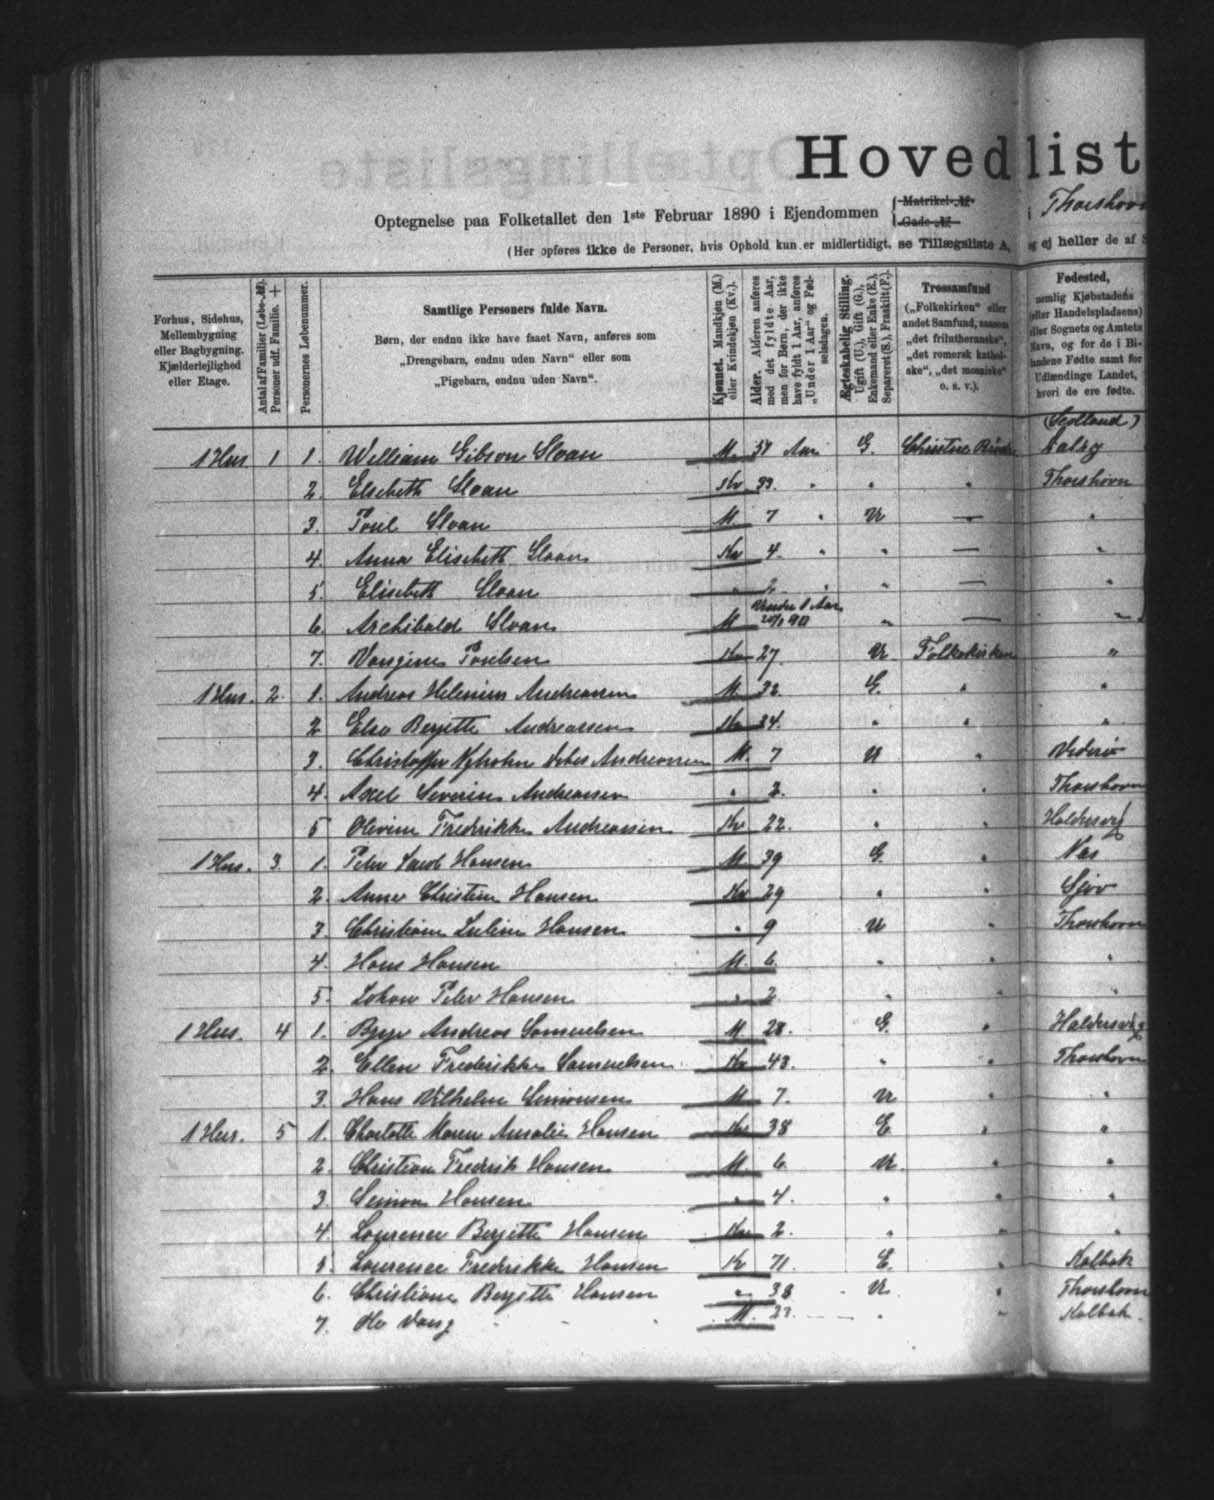 Hovedlist
Optegnelse paa Folketallet den 1ste Februar 1890 i Ejendommen { Matrikel-№ Gade-№ i Thorshavn
(Her opføres ikke de Personer, hvis Ophold kun er midlertidigt, se Tillægsliste A, og ej heller de af S
Forhus, Sidehus, Mellembygning eller Bagbygning. Kjælderlejlighed eller Etage.
Antal af Familier (Løbe-№). Personer udf. Familie. +
Personernes Løbenummer.
Samtlige Personers fulde Navn.
Børn, der endnu ikke have faaet Navn, anføres som „Drengebarn, endnu uden Navn“ eller som „Pigebarn, endnu uden Navn“.
Kjønnet. Mandkjøn (M.) eller Kvindekjøn (Kv.).
Alder. Alderen anføres med det fyldte Aar, men for Børn, der ikke have fyldt 1 Aar, anføres „Under 1 Aar“ og Fødselsdagen.
Ægteskabelig Stilling. Ugift (U.), Gift (G.), Enkemand eller Enke (E.), Separeret (S.), Fraskilt (F.).
Trossamfund („Folkekirken“ eller andet Samfund, saasom „det frilutheranske“, „det romersk katholske“, „det mosaiske“ o. s. v.).
Fødested, nemlig Kjøbstadens (eller Handelspladsens) eller Sognets og Amtets Navn, og for de i Bilandene Fødte samt for Udlændinge Landet, hvori de ere fødte.
(Scotland)
1 Hus 1 1. William Gibson Sloan M. Aar G. Christne
2. Elsebeth Sloan Kv 33. " " " Thorshavn
3. Poul Sloan M. 7 " U — "
4. Anna Elisebeth Sloan Kv 4. " " — "
5. Elisebeth Sloan " 2 " " — "
6. Archibald Sloan M Under 1 Aar " — "
7. Poulsen Kv 27. U Folkekirken "
1 Hus. 2. 1. Andreas Andreasen M. 32. G. " "
2 Else Berjette Andreassen Kv 34. " " "
3. Andreasen M. 7 U "
4. Axel Severin Andreasen " 2. " " Thorshavn
5 Olevine Fredrikke Andreasen Kv 22. " " Haldersvig
1 Hus. 3. 1. Peter Hansen M 39 G. " Næs
2. Anne Christine Hansen Kv 29 " "
3. Christiane Hansen " 9 U " Thorshavn
4. Hans Hansen M. 6. " " "
5. Johan Peter Hansen " 2 " " "
1 Hus. 4 1. Andreas Samuelsen M. 28. G. " Haldersvig
2. Ellen Frederikke Samuelsen Kv 43. " " Thorshavn
3. Hans Vilhelm Simonsen M 7. U " "
1 Hus. 5 1. Charlotte Maren Amalie Hansen Kv 38 E " "
2 Christian Fredrik Hansen M. 6. U. " "
3. Hansen " 4. " " "
4 Laurence Berjette Hansen Kv 2. " " "
5. Laurence Fredrikke Hansen Kv 71. E. " Kalbak
6. Christiane Berjette Hansen " 38 U. " Thorshavn
7. M. " " Kalbak.